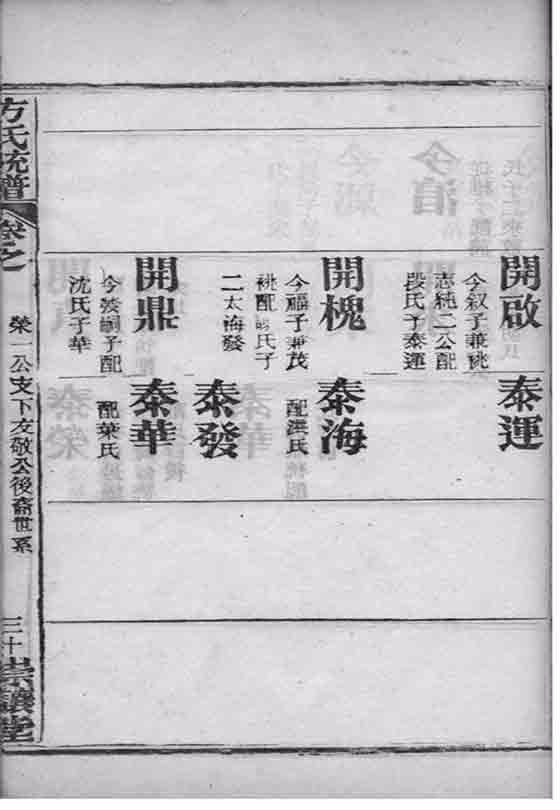 開啟
今叙子兼祧
志純二公配
段氏子泰運
泰運
開槐
今福子兼茂
祧配 氏子
二太海發
泰海
配洪氏
泰發
開鼎
今嗣子配
沈氏子華
泰華
配葉氏
方氏統譜
卷之
榮一公支下友敬公後裔世系
三十
崇讓堂